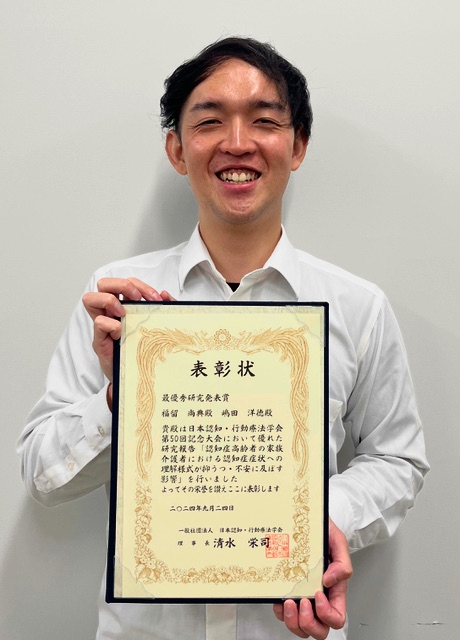 表彰状
最優秀研究発表賞
福留 尚典殿 嶋田 洋徳殿
貴殿は日本認知・行動療法学会
第50回記念大会において優れた
研究報告「認知症高齢者の家族
介護者における認知症症状への
理解様式が抑うつ・不安に及ぼす
影響」を行いました
よってその栄誉を讃えここに表彰します
二〇二四年九月二四日
一般社団法人 日本認知・行動療法学会
理事長 清水 栄司